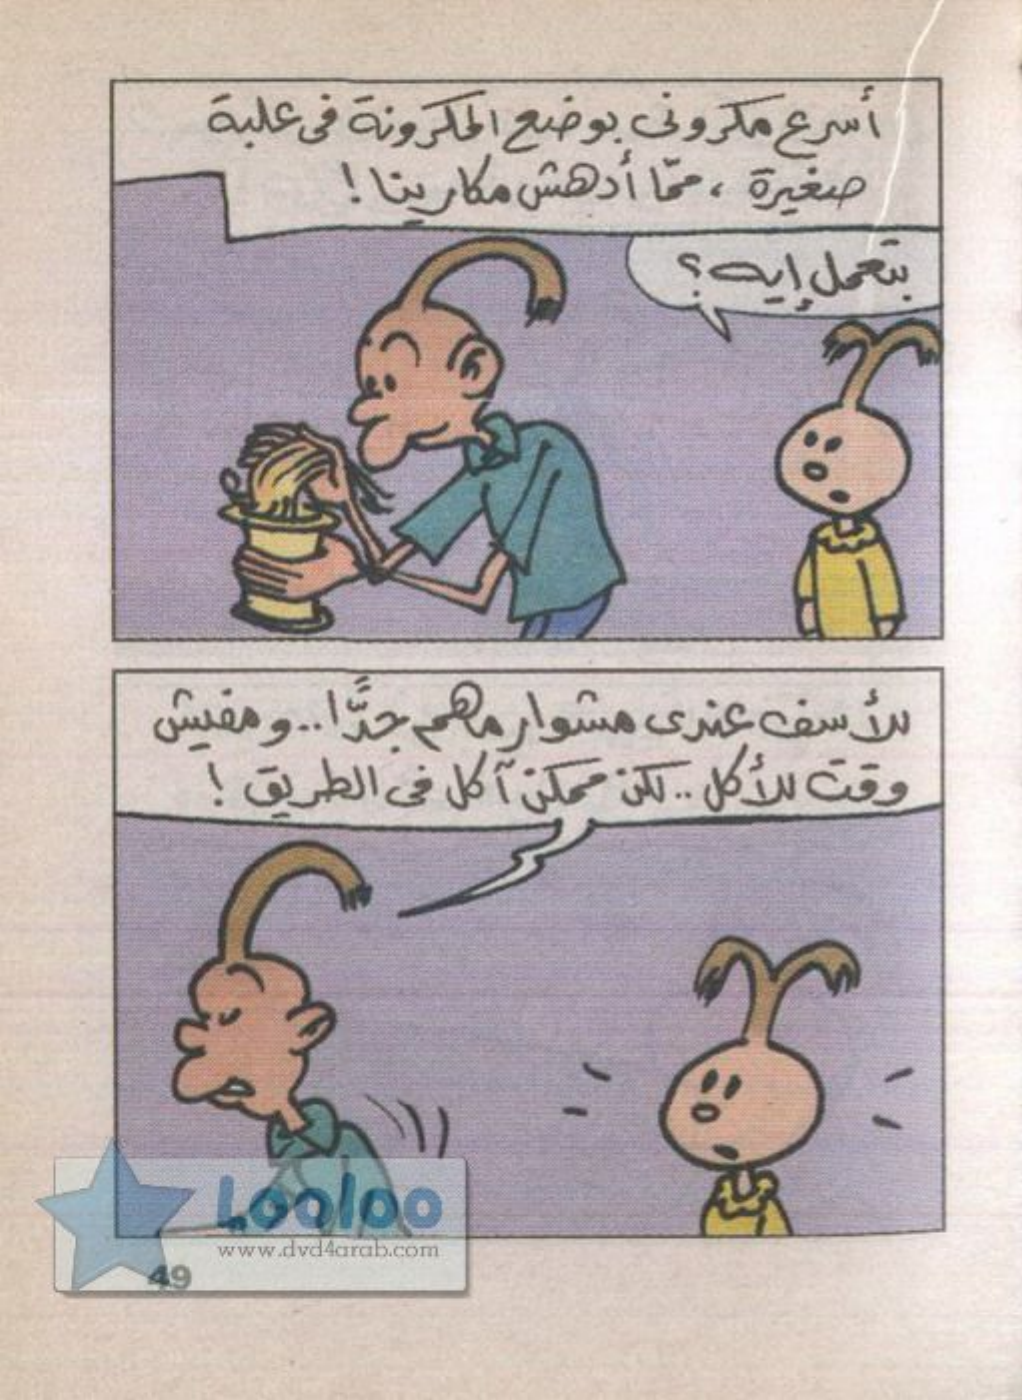 أسرع مكرونى بوضع المكرونة فى علبة
صغيرة ، ممّا أدهش مكارينا !
بتعمل إيه ؟
للأسف عندى مشوار مهم جدًّا .. ومفيش
وقت للأكل .. لكن ممكن آكل فى الطريق !
Looloo
www.dvd4arab.com
49